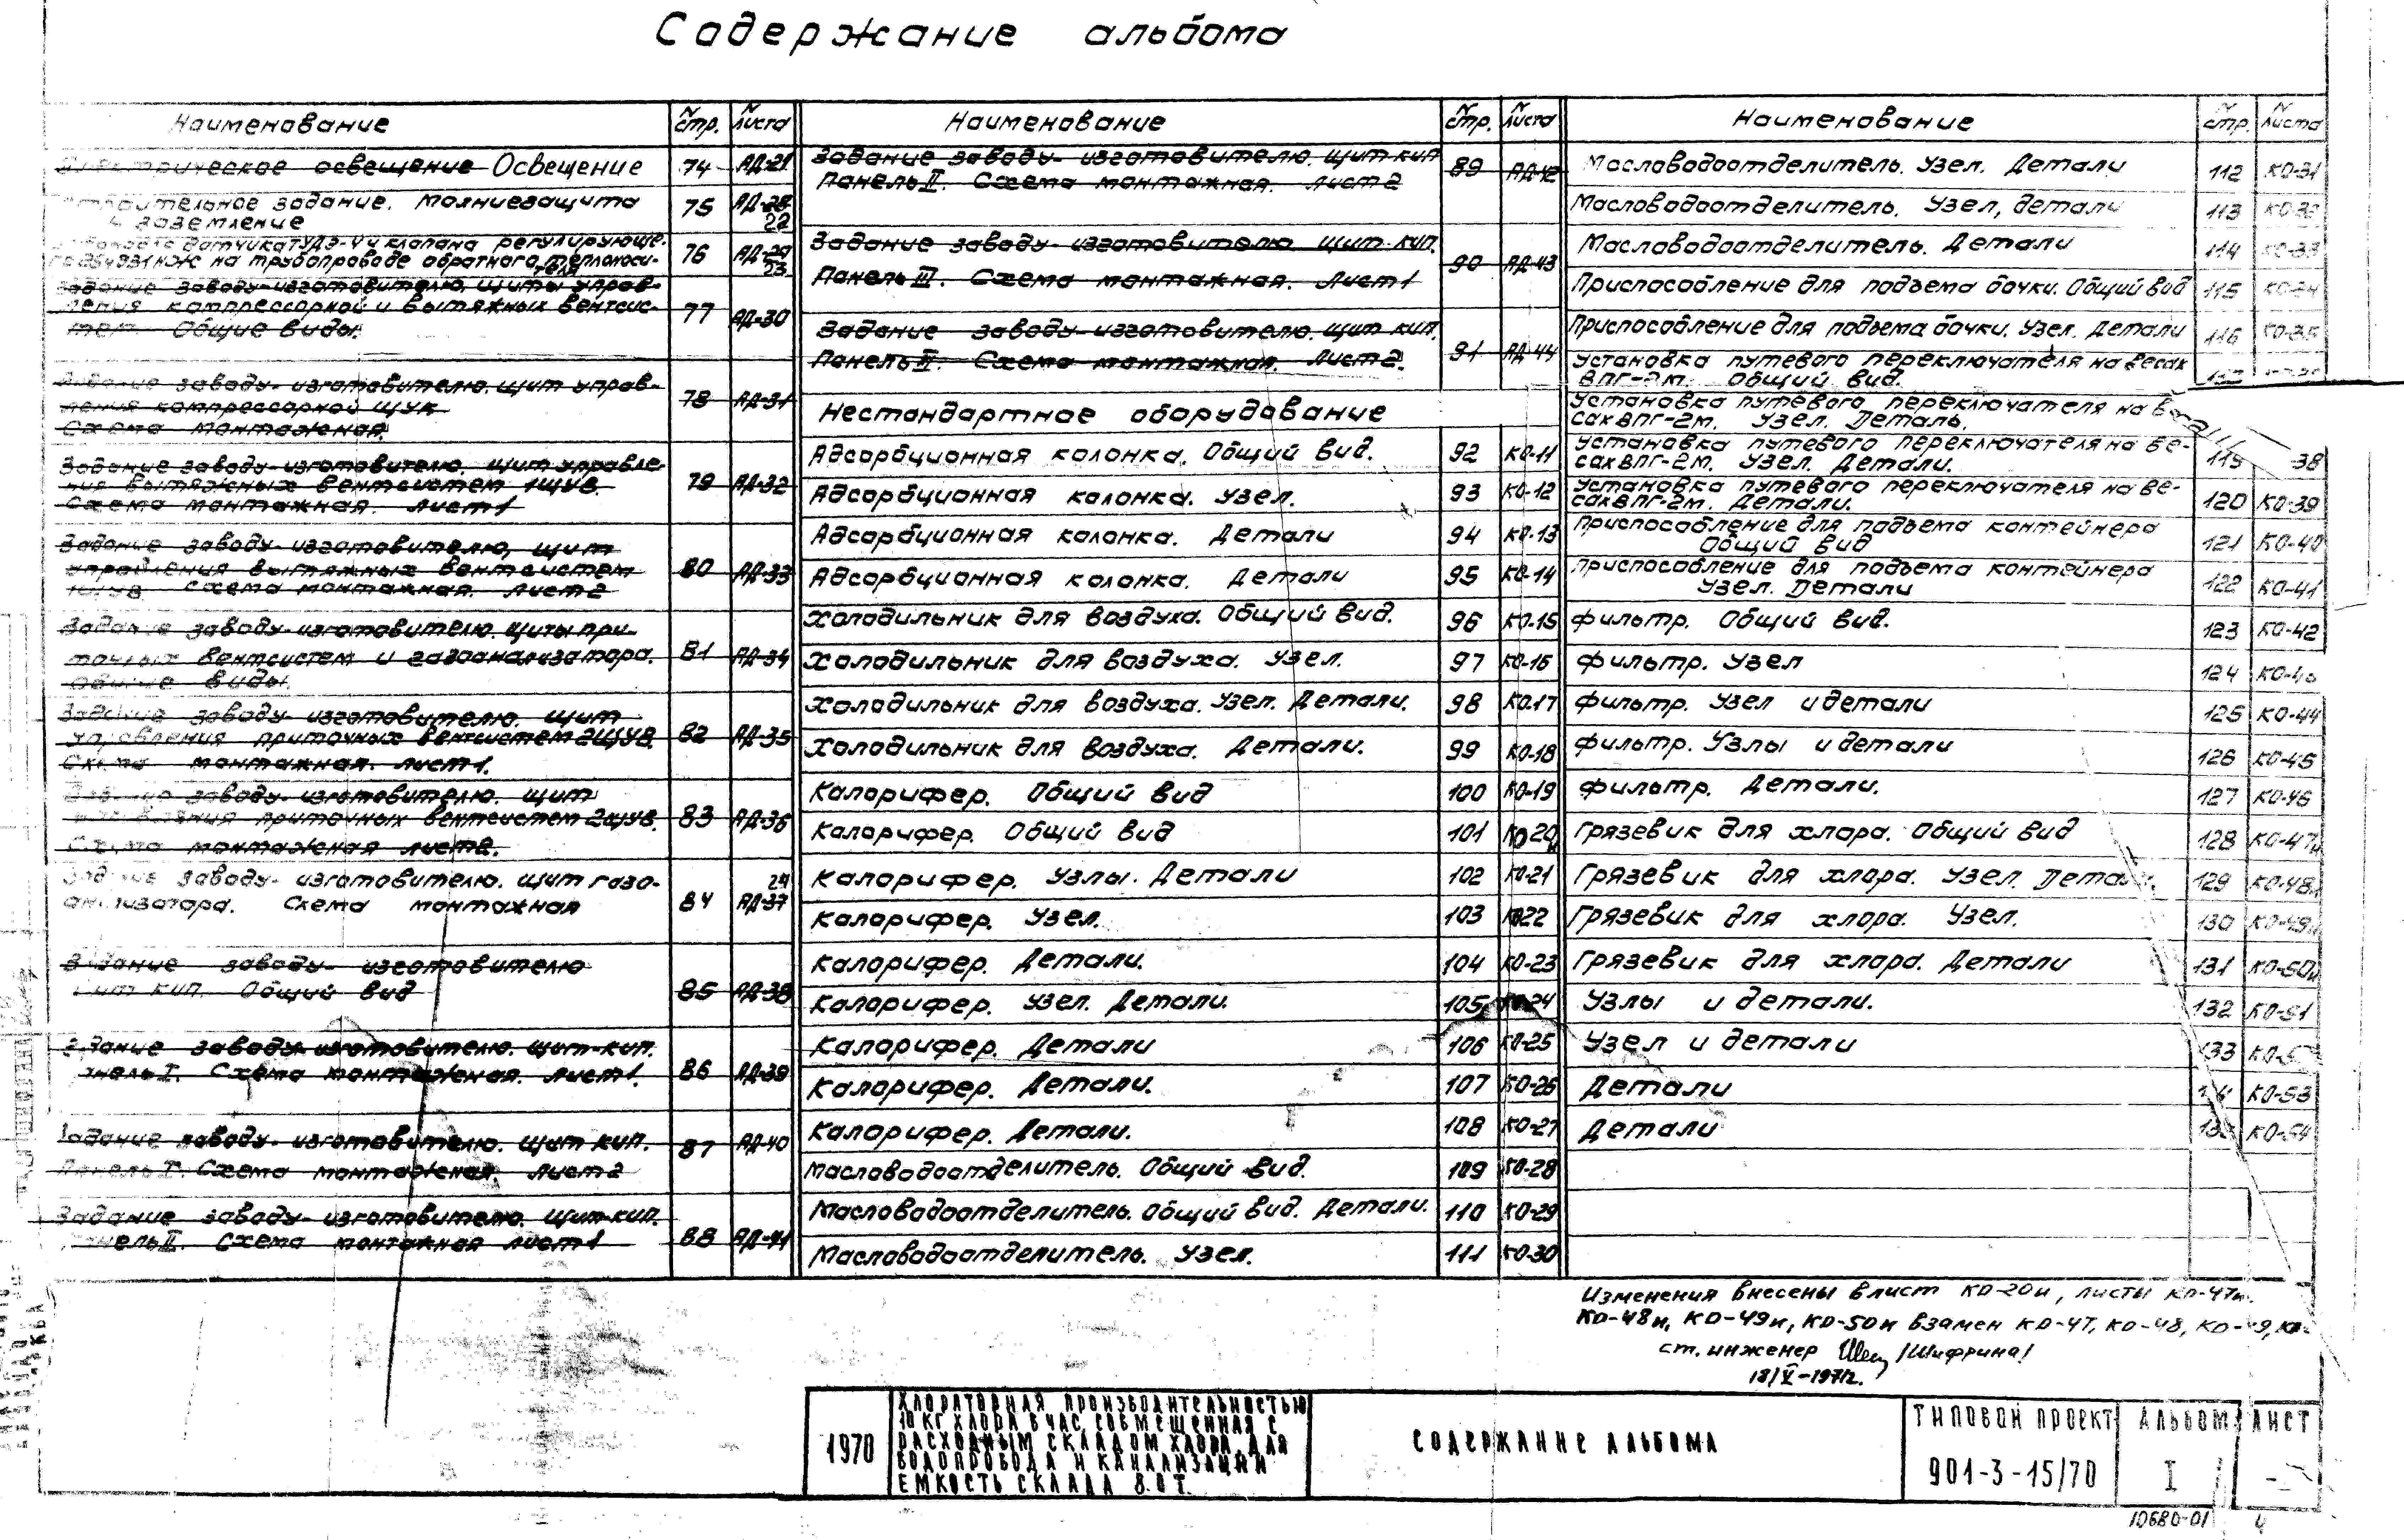 Содержание альбома
Наименование
N стр.
N листа
освещение Освещение
74
АД-21
задание. Молниезащита
и заземление
75
АД-28
22
датчика ТУДЭ-4 и клапана регулирующе-
на трубопроводе обратного теплоноси-
теля
76
АД-29
23
Задание заводу-изготовителю, щиты управ-
ления компрессорной и вытяжных вентсис-
тем Общие виды.
77
АД-30
Задание заводу-изготовителю. щит управ-
ления компрессорной ЩУК
Схема монтажная.
78
АД-31
Задание заводу-изготовителю. щит управле-
ния вытяжных вентсистем 1ЩУВ.
Схема монтажная. лист 1
79
АД-32
Задание заводу-изготовителю, щит
управления вытяжных вентсистем
1ЩУВ Схема монтажная. лист 2
80
АД-33
Задание заводу-изготовителю. щиты при-
точных вентсистем и газоанализатора.
Общие виды.
81
АД-34
Задание заводу-изготовителю. щит
управления приточных вентсистем 2ЩУВ.
Схема монтажная. лист 1.
82
АД-35
Задание заводу-изготовителю. щит
управления приточных вентсистем 2ЩУВ.
Схема монтажная лист 2.
83
АД-36
Задание заводу-изготовителю. щит газо-
анализатора. Схема монтажная
84
24
АД-37
Задание заводу-изготовителю
щит КИП. Общий вид
85
АД-38
Задание заводу-изготовителю. щит-КИП.
Панель I. Схема монтажная. лист 1.
86
АД-39
Задание заводу-изготовителю. щит КИП.
Панель I. Схема монтажная. лист 2
87
АД-40
Задание заводу-изготовителю. щит-КИП.
Панель II. Схема монтажная лист 1
88
АД-41
Наименование
N стр.
N листа
Задание заводу-изготовителю. щит КИП
Панель II. Схема монтажная. лист 2
89
АД-42
Задание заводу-изготовителю щит-КИП.
Панель III. Схема монтажная. Лист 1
90
АД-43
Задание заводу-изготовителю. щит КИП.
Панель Схема монтажная. Лист 2.
91
АД-44
Нестандартное оборудование
Адсорбционная колонка. Общий вид.
92
КО-11
Адсорбционная колонка. Узел.
93
КО-12
Адсорбционная колонка. Детали
94
КО-13
Адсорбционная колонка. Детали
95
КО-14
Холодильник для воздуха. Общий вид.
96
КО-15
Холодильник для воздуха. Узел.
97
КО-16
Холодильник для воздуха. Узел. Детали.
98
КО-17
Холодильник для воздуха. Детали.
99
КО-18
Калорифер. Общий вид
100
КО-19
Калорифер. Общий вид
101
КО-20и
Калорифер. Узлы. Детали
102
КО-21
Калорифер. Узел.
103
КО22
Калорифер. Детали.
104
КО-23
Калорифер. Узел. Детали.
105
КО-24
Калорифер. Детали
106
КО-25
Калорифер. Детали.
107
КО-26
Калорифер. Детали.
108
КО-27
Масловодоотделитель. Общий вид.
109
КО-28
Масловодоотделитель. Общий вид. Детали.
110
КО-29
Масловодоотделитель. Узел.
111
КО-30
Наименование
N стр.
N листа
Масловодоотделитель. Узел. Детали
112
КО-31
Масловодоотделитель. Узел, детали
113
КО-32
Масловодоотделитель. Детали
114
КО-33
Приспособление для подъема бочки. Общий вид
115
КО-34
Приспособление для подъема бочки. Узел. Детали
116
КО-35
Установка путевого переключателя на весах
ВПГ-2м. Общий вид.
Установка путевого переключателя на ве-
сах ВПГ-2м. Узел. Деталь.
Установка путевого переключателя на ве-
сах ВПГ-2м. Узел. Детали.
119
38
Установка путевого переключателя на ве-
сах ВПГ-2м. Детали.
120
КО-39
Приспособление для подъема контейнера
Общий вид
121
КО-40
Приспособление для подъема контейнера
Узел. Детали
122
КО-41
Фильтр. Общий вид.
123
КО-42
Фильтр. Узел
124
Фильтр. Узел и детали
125
КО-44
Фильтр. Узлы и детали
126
КО-45
Фильтр. Детали.
127
КО-46
Грязевик для хлора. Общий вид
128
КО-47и
Грязевик для хлора. Узел. Детали.
129
КО-48и
Грязевик для хлора. Узел.
130
КО-49и
Грязевик для хлора. Детали
131
КО-50и
Узлы и детали.
132
КО-51
Узел и детали
133
Детали
КО-53
Детали
КО-54
Изменения внесены в лист КО-20и, листы КО-47и.
КО-48и, КО-49и, КО-50и взамен КО-47, КО-48, КО-49,
ст. инженер /Шифрина/
18/V-1971г.
1970
ХЛОРАТОРНАЯ ПРОИЗВОДИТЕЛЬНОСТЬЮ
10 КГ ХЛОРА В ЧАС, СОВМЕЩЕННАЯ С
РАСХОДНЫМ СКЛАДОМ ХЛОРА, ДЛЯ
ВОДОПРОВОДА И КАНАЛИЗАЦИИ
ЕМКОСТЬ СКЛАДА 8.0 Т.
СОДЕРЖАНИЕ АЛЬБОМА
ТИПОВОЙ ПРОЕКТ
901-3-15/70
АЛЬБОМ
I
ЛИСТ
10680-01
4